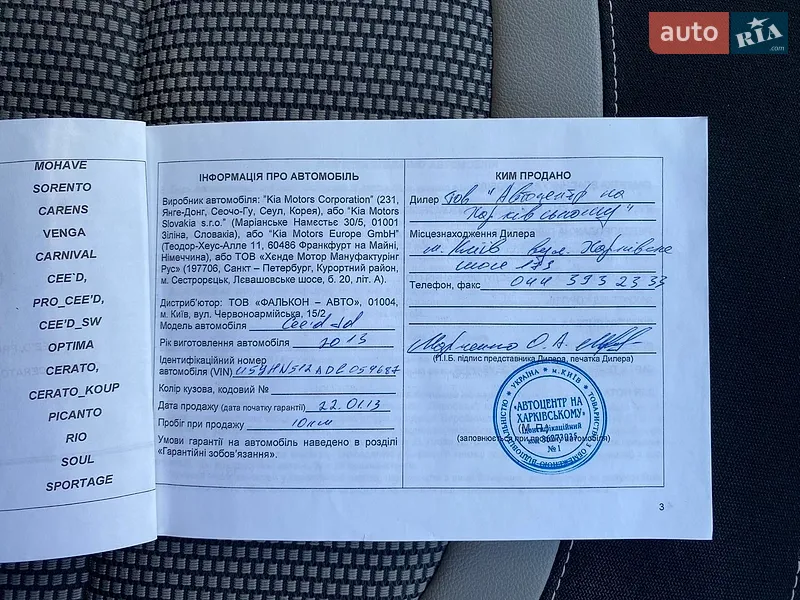 auto RIA.com
MOHAVE
SORENTO
CARENS
VENGA
CARNIVAL
CEE`D,
PRO_CEE'D,
CEE'D_SW
OPTIMA
CERATO,
CERATO_KOUP
PICANTO
RIO
SOUL
SPORTAGE
ІНФОРМАЦІЯ ПРО АВТОМОБІЛЬ
Виробник автомобіля: "Kia Motors Corporation" (231,
Янге-Донг, Сеочо-Гу, Сеул, Корея), або "Kia Motors
Slovakia s.r.o." (Маріанське Наместьє 30/5, 01001
Зіліна, Словакія), або "Kia Motors Europe GmbH"
(Теодор-Хеус-Алле 11, 60486 Франкфурт на Майні,
Німеччина), або ТОВ «Хєнде Мотор Мануфактурінг
Рус» (197706, Санкт – Петербург, Курортний район,
м. Сестрорецьк, Лєвашовське шосе, б. 20, літ. А).
Дистриб'ютор: ТОВ «ФАЛЬКОН – АВТО», 01004,
м. Київ, вул. Червоноармійська, 15/2
Модель автомобіля Cee'd Jd
Рік виготовлення автомобіля 2013
Ідентифікаційний номер
автомобіля (VIN) U5YHN512ADL059687
Колір кузова, кодовий №
Дата продажу (дата початку гарантії) 22.01.13
Пробіг при продажу 10км
Умови гарантії на автомобіль наведено в розділі
«Гарантійні зобов'язання».
КИМ ПРОДАНО
Дилер Тов "Автоцентр на
Харківському"
Місцезнаходження Дилера
м. Київ вул. Харківське
шосе 173
Телефон, факс 044 393 23 33
О. А.
(П.І.Б. підпис представника Дилера, печатка Дилера)
УКРАЇНА * м. КИЇВ
ТОВАРИСТВО З ОБМЕЖЕНОЮ ВІДПОВІДАЛЬНІСТЮ
"АВТОЦЕНТР НА
ХАРКІВСЬКОМУ"
(М. П.)
Ідентифікаційний
(заповнюється при продажу автомобіля)
№ 1
3